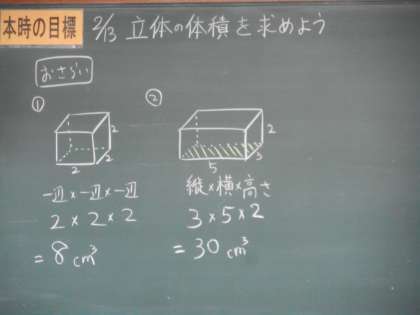 本時の目標 2/13 立体の体積を求めよう
おさらい
① ②
2 2 2
5 3 2
一辺×一辺×一辺
縦×横×高さ
2×2×2
3×5×2
=8cm³
=30cm³